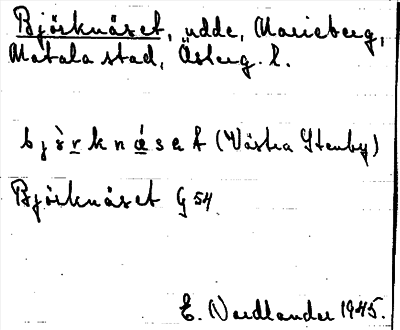 Björknäset, udde, Marieberg,
Motala stad, Österg. l.
bjö̀rknǽset (Västra Stenby)
Björknäset G 54.
E. Nordlander 1945.